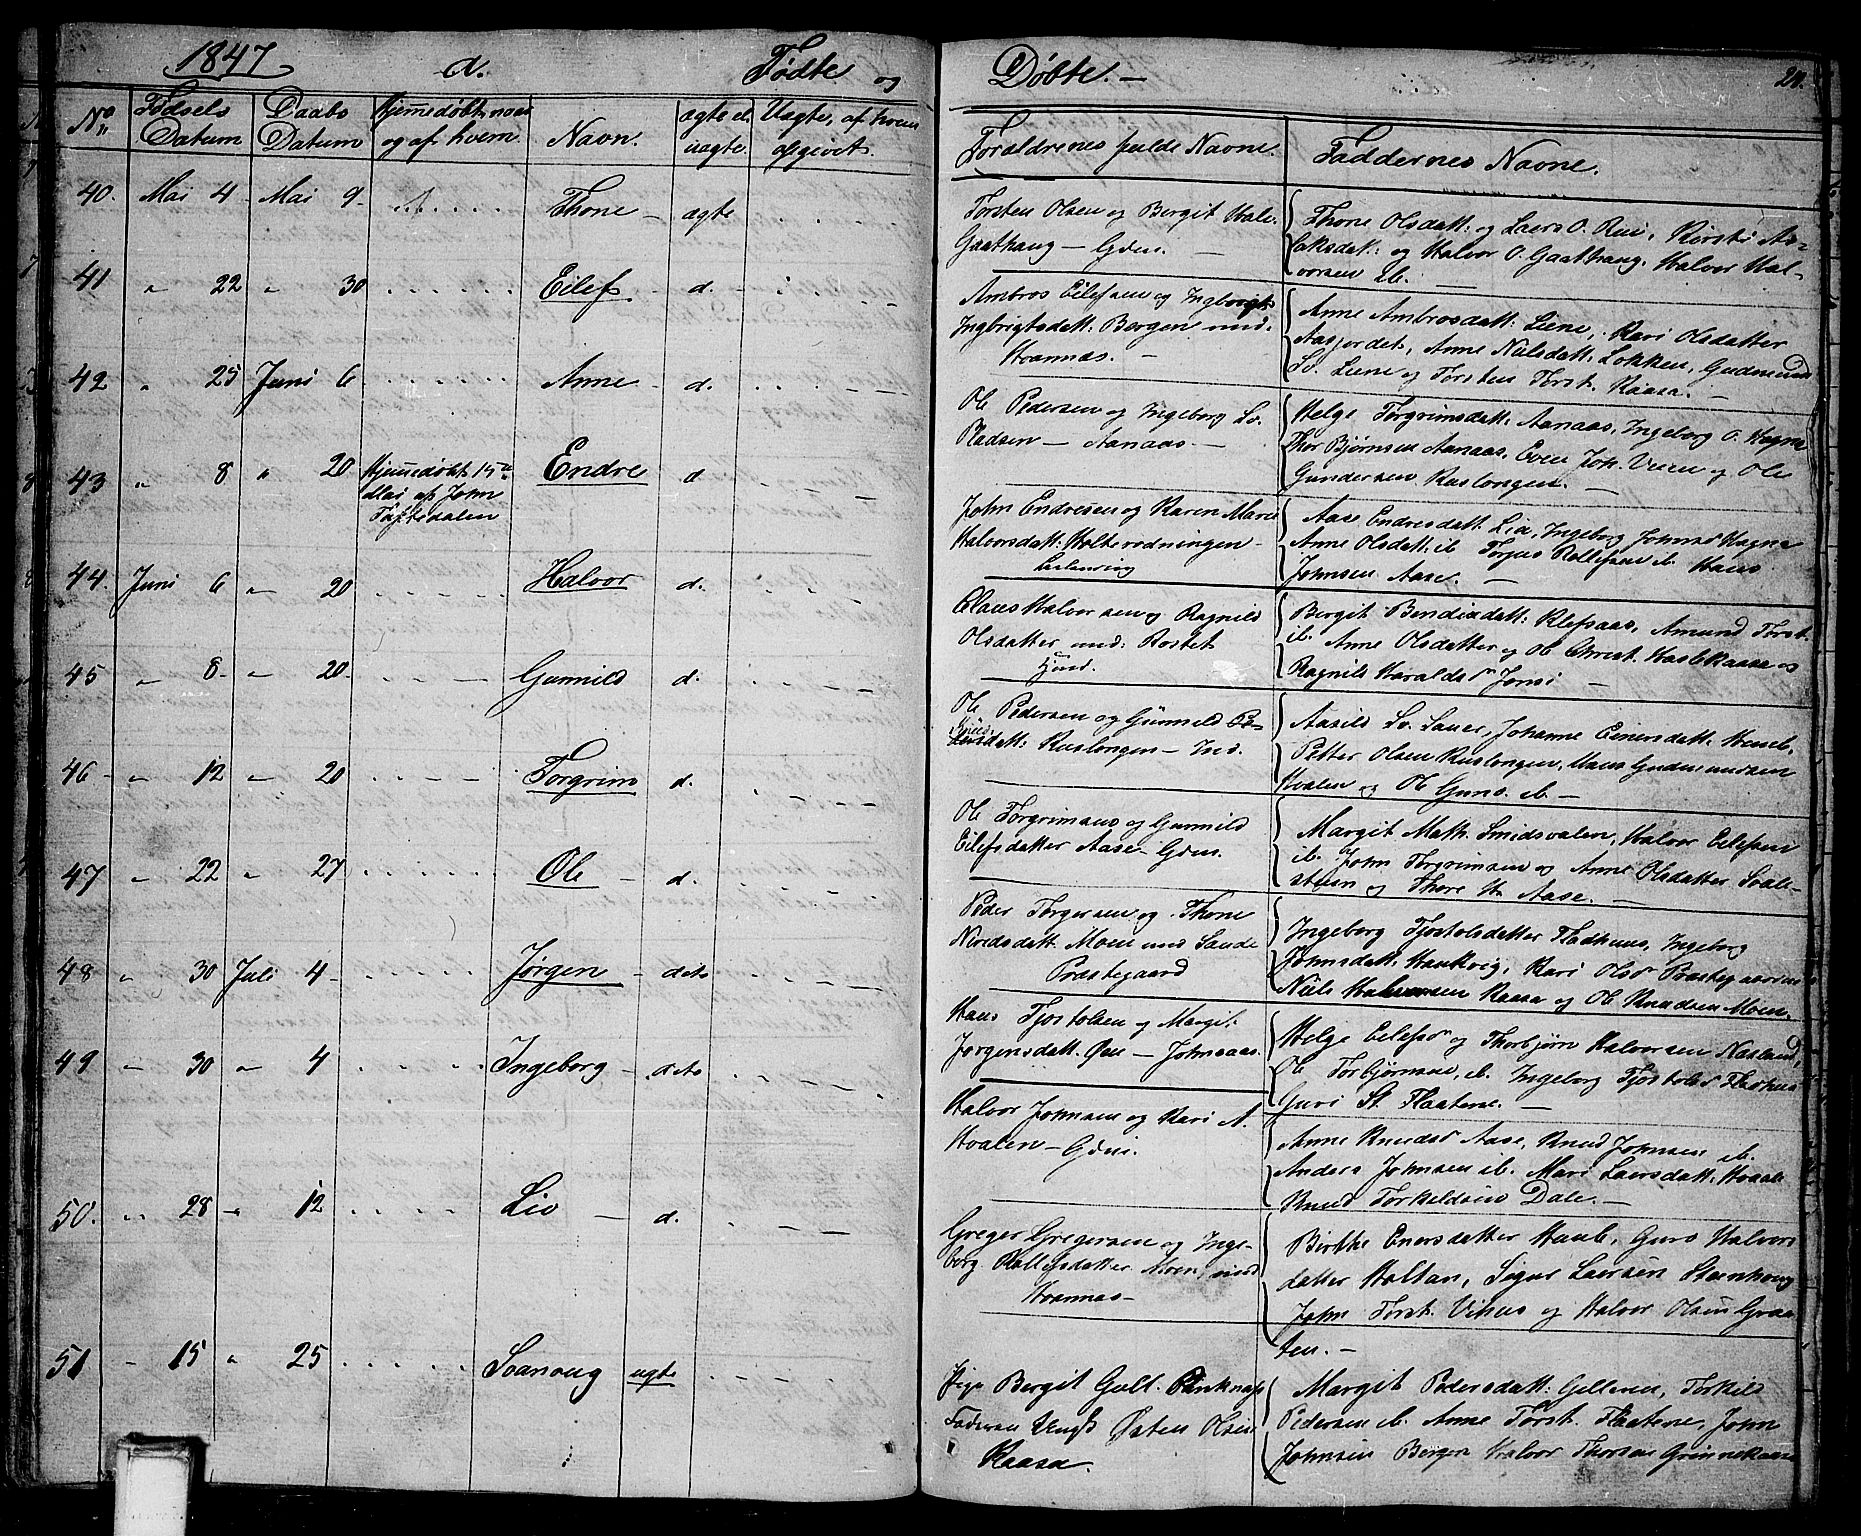 1847 a. Fødte og Døbte. — 24.
No Fødsels Datum Daabs Datum Hjemmedøbt naar og af hvem. Navn. ægte el. uægte. Uægte, af hvem opgivet. Forældrenes fulde Navne. Faddernes Navne.
40. Mai 4 Mai 9 Thone — ægte
Torsten Olsen og Bergit Hal.
Gaathaug — Gden. —
Thone Olsdatt: og Laers O. Rui, Kirsti As-
laksdat: og Halvor O. Gaathaug. Halvor Hal-
vorsen ib. —
41 " 22 " 30 Eilef — d.
Ambros Eilefsen og Ingborg
Ingbrigtsdatt: Bergen und.
Hvannæs. —
Anne Ambrosdatt: Liene, Kari Olsdatter
Aasjordet, Anne Nielsdatt: Løkken, Gudmund
Sv. Liene og Torsten Torst. Kaasa. —
42 " 25 Juni 6 Anne — d.
Ole Pedersen og Ingeborg Sv.
Pladsen — Aanaas —
Helge Torgrimsdatt: Aanaas, Ingeborg O. Hagne
Thor Bjørnsen Aanaas, Even Joh. Veien og Ole
Gundersen Ruslongen. —
43 " 8 " 20 Hjemmedøbt 15de
Mai af John
Taftedalen
Endre d
John Endresen og Karen Marie
Halvorsdatt: Holterødningen —
Aase Endresdatt: Lia, Ingeborg Johnsd Hagna
Anne Olsdatt: ib. Torjus Rollefsen ib. Hans
Johnsen Aase. —
44. Juni 6 " 20 Halvor d.
Claus Halvorsen og Ragnild
Olsdatter und: Rostet
Hjend.
Bergit Bendixdatt: Klefsaas, Amund Torst.
ib. Anne Olsdatter og Ole Christ. Haslekaasa og
Ragnild Haraldsd Jønsi —
45 " 8 — " 20 — Gunnild d.
Ole Pedersen og Gunnild Pe-
Ruslongen — Ind.
Aasild Sv. Sauar, Johanne Einersdatt: Huseb.
Petter Olsen Ruslongen, Hans Gudmundsen
Hvalen og Ole Guns. ib. —
46 — " 12 — 20 Torgrim d.
Ole Torgrimsen og Gunnild
Eilefsdatter Aase — Gden.
Margit Math. Smidsvalen, Halvor Eilefsen
ib. John Torgrimsen og Anne Olsdatter Svale-
steen og Thore H. Aase. —
47 " 22 " 27 Ole — d.
Peder Torgersen og Thone
Nirisdatt. Moen und Saude
Præstegaard
Ingeborg Tjostolsdatter Fladhuus, Ingeborg
Johnsdatt. Haukvig, Kari Olsd Præstegaarden
Niels Halvorsen Kaasa og Ole Knudsen Moen.
48 " 30 Juli 4 — Jørgen — dito
Hans Tjostolsen og Margit
Jørgensdatt. Øen — Johnsaas.
Helge Eilefsd og Thorbjørn Halvorsen Næsland,
Ole Torbjørnsen, ib. Ingeborg Tjostolsd Fladhuus
Guri St. Flaatene. —
49 " 30 " 4 Ingeborg — dito
Halvor Johnsen og Kari A.
Hvalen — Gden.
Anne Knudsd Aase, Knud Johnsen ib.
Anders Johnsen ib. Mari Laersdatt. Hvale
Knud Torkeldsen Dale. —
50. " 28 — " 12 Liv — d.
Greger Gregersen og Inge-
borg Rollefsdatter Moen, und
Hvannæs —
Birthe Enersdatter Huseb, Guro Halvors
datter Holtan, Sigur Laersen Steenhoug
John Torst. Vihus og Halvor Olsen Graa
ten. —
51 — 15 " 25 Svanoug uægte
Pige Bergit Gull. Rinknæs
Faderen Ungk Østen Olsen
Kaasa.
Margit Pedersdatt: Gilleren, Torkild
Pedersen ib. Anne Torst. Flaatene, John
Johnsen Bergen Halvor Thorsen Grinnekaasa